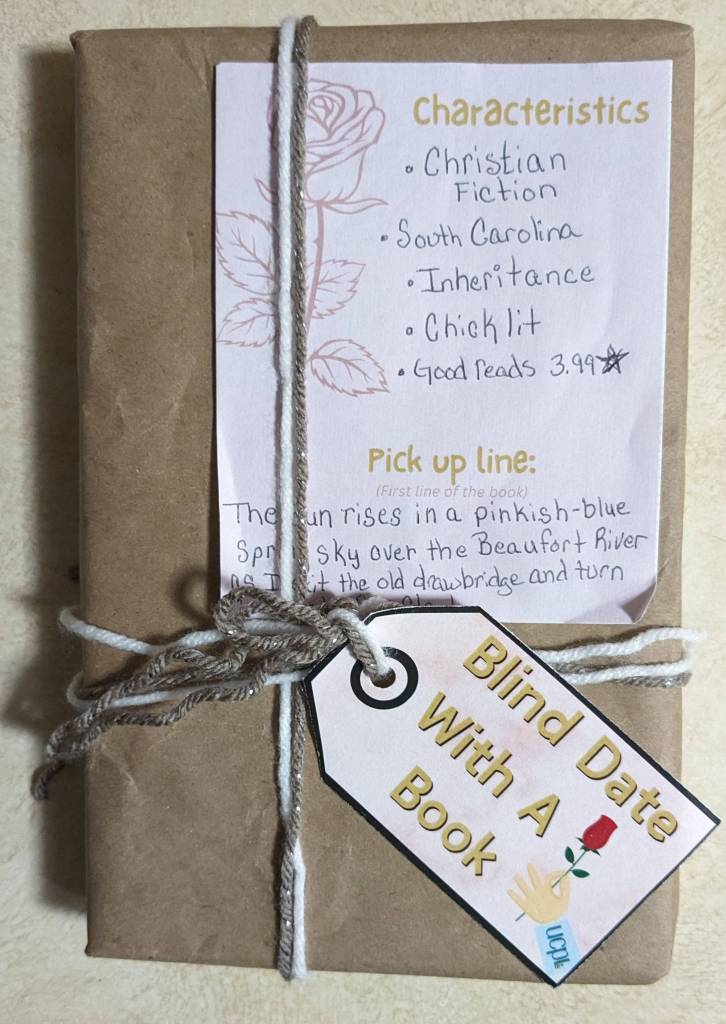 Characteristics
• Christian
Fiction
• South Carolina
• Inheritance
• Chick lit
• Good reads 3.99
Pick up line:
(First line of the book)
The un rises in a pinkish-blue
Spr sky over the Beaufort River
as I it the old drawbridge and turn
Blind Date
With A
Book
ucpl